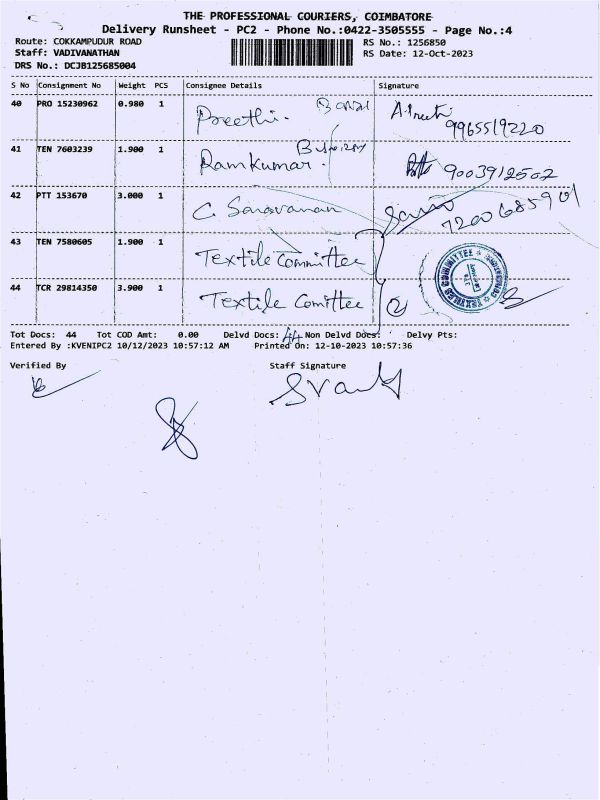 THE PROFESSIONAL COURIERS, COIMBATORE
Delivery Runsheet - PC2 - Phone No.:0422-3505555 - Page No.:4
Route: COKKAMPUDUR ROAD
Staff: VADIVANATHAN
DRS No.: DCJB125685004
RS No.: 1256850
RS Date: 12-Oct-2023
S No Consignment No Weight PCS Consignee Details Signature
40 PRO 15230962 0.980 1 Preethi. A.Preethi
9965519220
41 TEN 7603239 1.900 1 Ramkumar. 9003912502
42 PTT 153670 3.000 1 C. Saravanan
7200685901
43 TEN 7580605 1.900 1 Textile Committee
44 TCR 29814350 3.900 1 Textile Comittee 2
TEXTILES COMMITTEE
Tot Docs: 44 Tot COD Amt: 0.00 Delvd Docs: 44 Non Delvd Docs: Delvy Pts:
Entered By :KVENIPC2 10/12/2023 10:57:12 AM Printed On: 12-10-2023 10:57:36
Verified By Staff Signature